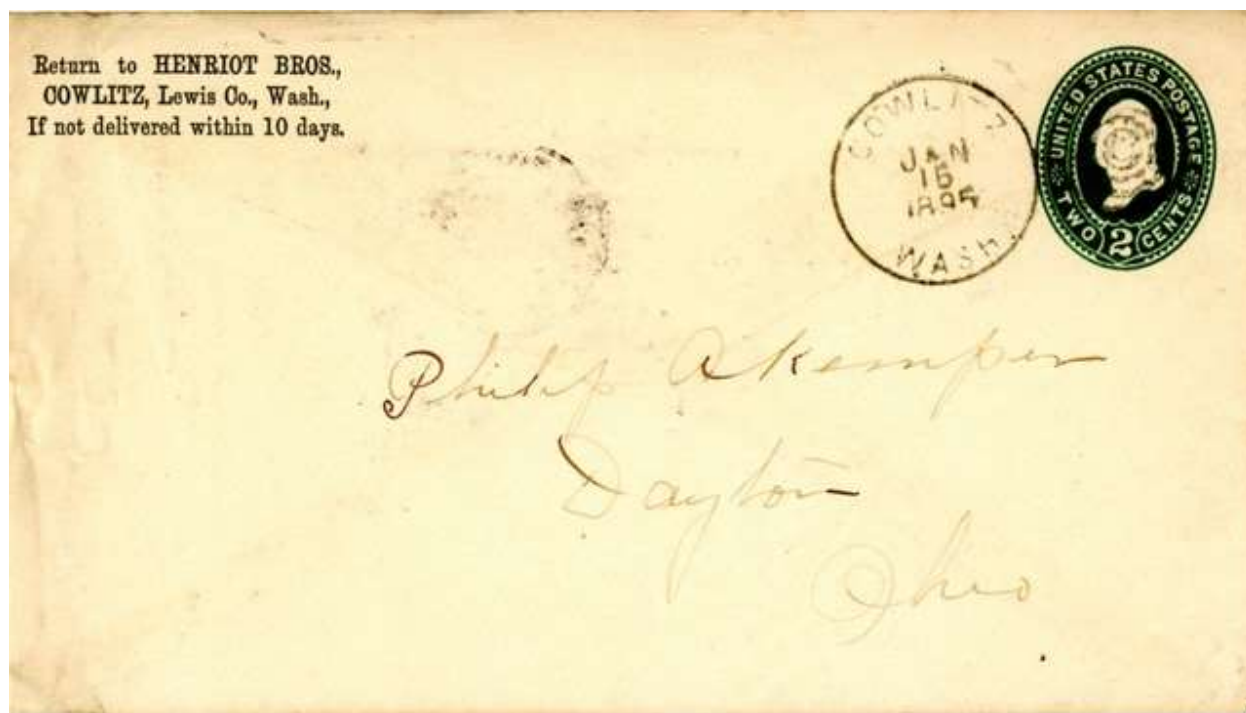 Return to HENRIOT BROS.,
COWLITZ, Lewis Co., Wash.,
If not delivered within 10 days.
COWLITZ
JAN
15
1895
WASH.
UNITED STATES POSTAGE
TWO 2 CENTS
Philip A Kemper
Dayton
Ohio